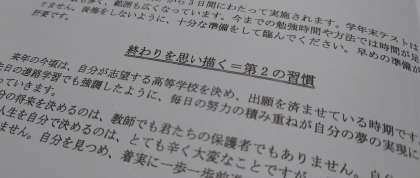 ら3日間にわたって実施されます。学年末テストは
も多く、範囲も広くなっています。今までの勉強時間や方法では時間が足
りません。後悔をしないように、十分な準備をして臨んでください。早めの準備が
肝要です。
終わりを思い描く＝第2の習慣
来年の今頃は、自分が志望する高等学校を決め、出願を済ませている時期です。
日の進路学習でも強調したように、毎日の努力の積み重ねが自分の夢の実現に
っていきます。
分の将来を決めるのは、教師でも君たちの保護者でもありません。自分
人生を自分で決めるのは、とても辛く大変なことですが
ません。自分を見つめ、着実に一歩一歩前進